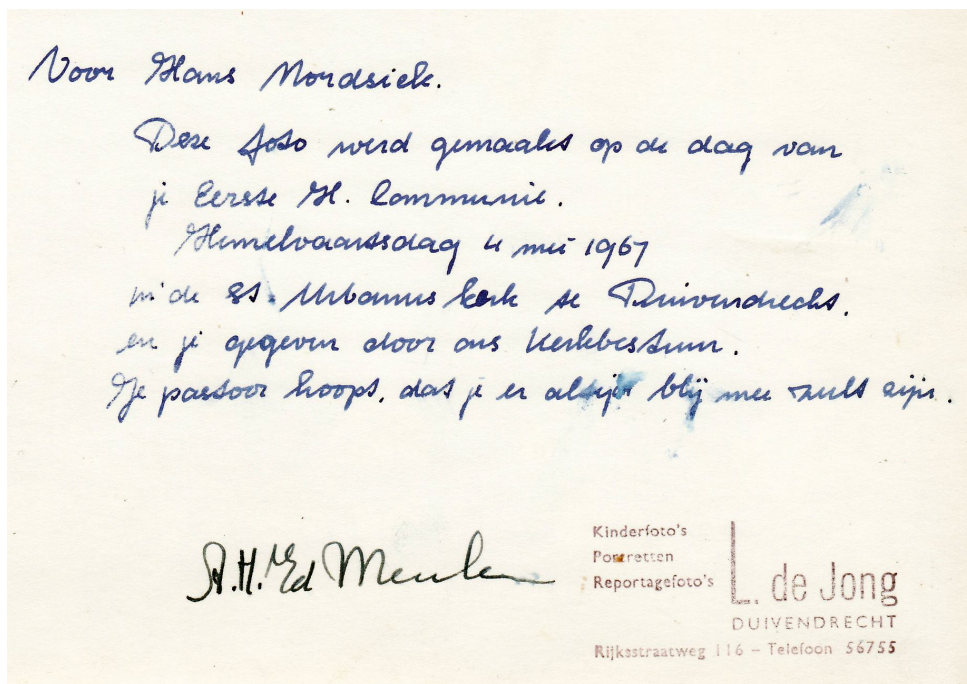 Voor Hans Nordsiek.
Deze foto werd gemaakt op de dag van
je Eerste H. Communie.
Hemelvaartsdag 4 mei 1967
in de St. Urbanus kerk te Duivendrecht.
en je gegeven door ons Kerkbestuur.
Je pastoor hoopt, dat je er altijd blij mee zult zijn.
A.H. Ed
Kinderfoto's
Portretten
Reportagefoto's
L. de Jong
DUIVENDRECHT
Rijksstraatweg 116 – Telefoon 56755